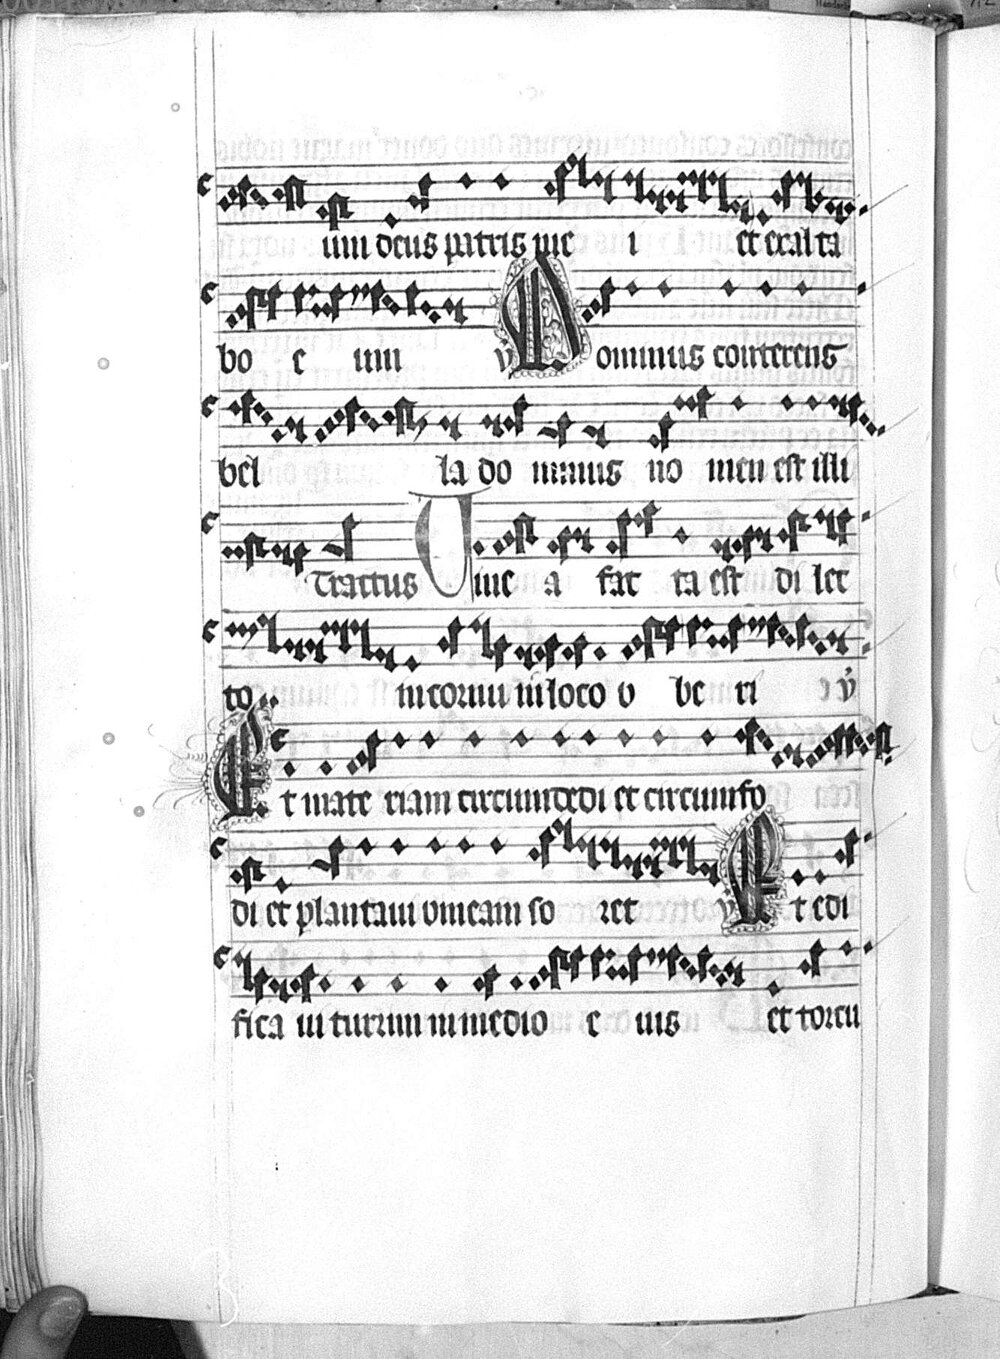 um deus patris me i et exal ta
bo e um ℣ Dominus conterens
bel la do minus no men est illi
Tractus Vine a fac ta est di lec
ta in cornu in loco u be ri ℣
Et mace riam circumdedi et circumfo
di et plantaui vineam so rec ℣ Et edi
fica ui turrim in medio e ius et torcu